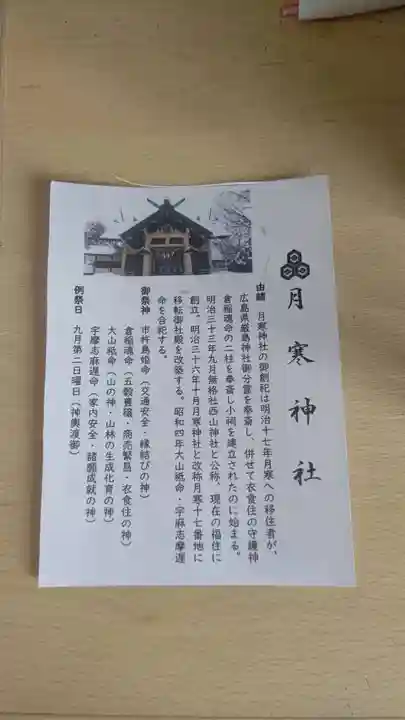 月寒神社
由緒 月寒神社の御創祀は明治十七年月寒への移住者が、
広島県厳島神社御分霊を奉斎し、併せて衣食住の守護神
倉稲魂命の二柱を奉斎し小祠を建立されたのに始まる。
明治三十三年九月無格社西山神社と公称、現在の福住に
創立。明治三十六年十月月寒神社と改称月寒十七番地に
移転御社殿を改築する。昭和四年大山祗命・宇麻志摩遅
命を合祀する。
御祭神 市杵島姫命（交通安全・縁結びの神）
倉稲魂命（五穀豊穣・商売繁昌・衣食住の神）
大山祗命（山の神・山林の生成化育の神）
宇摩志麻遅命（家内安全・諸願成就の神）
例祭日 九月第二日曜日（神輿渡御）